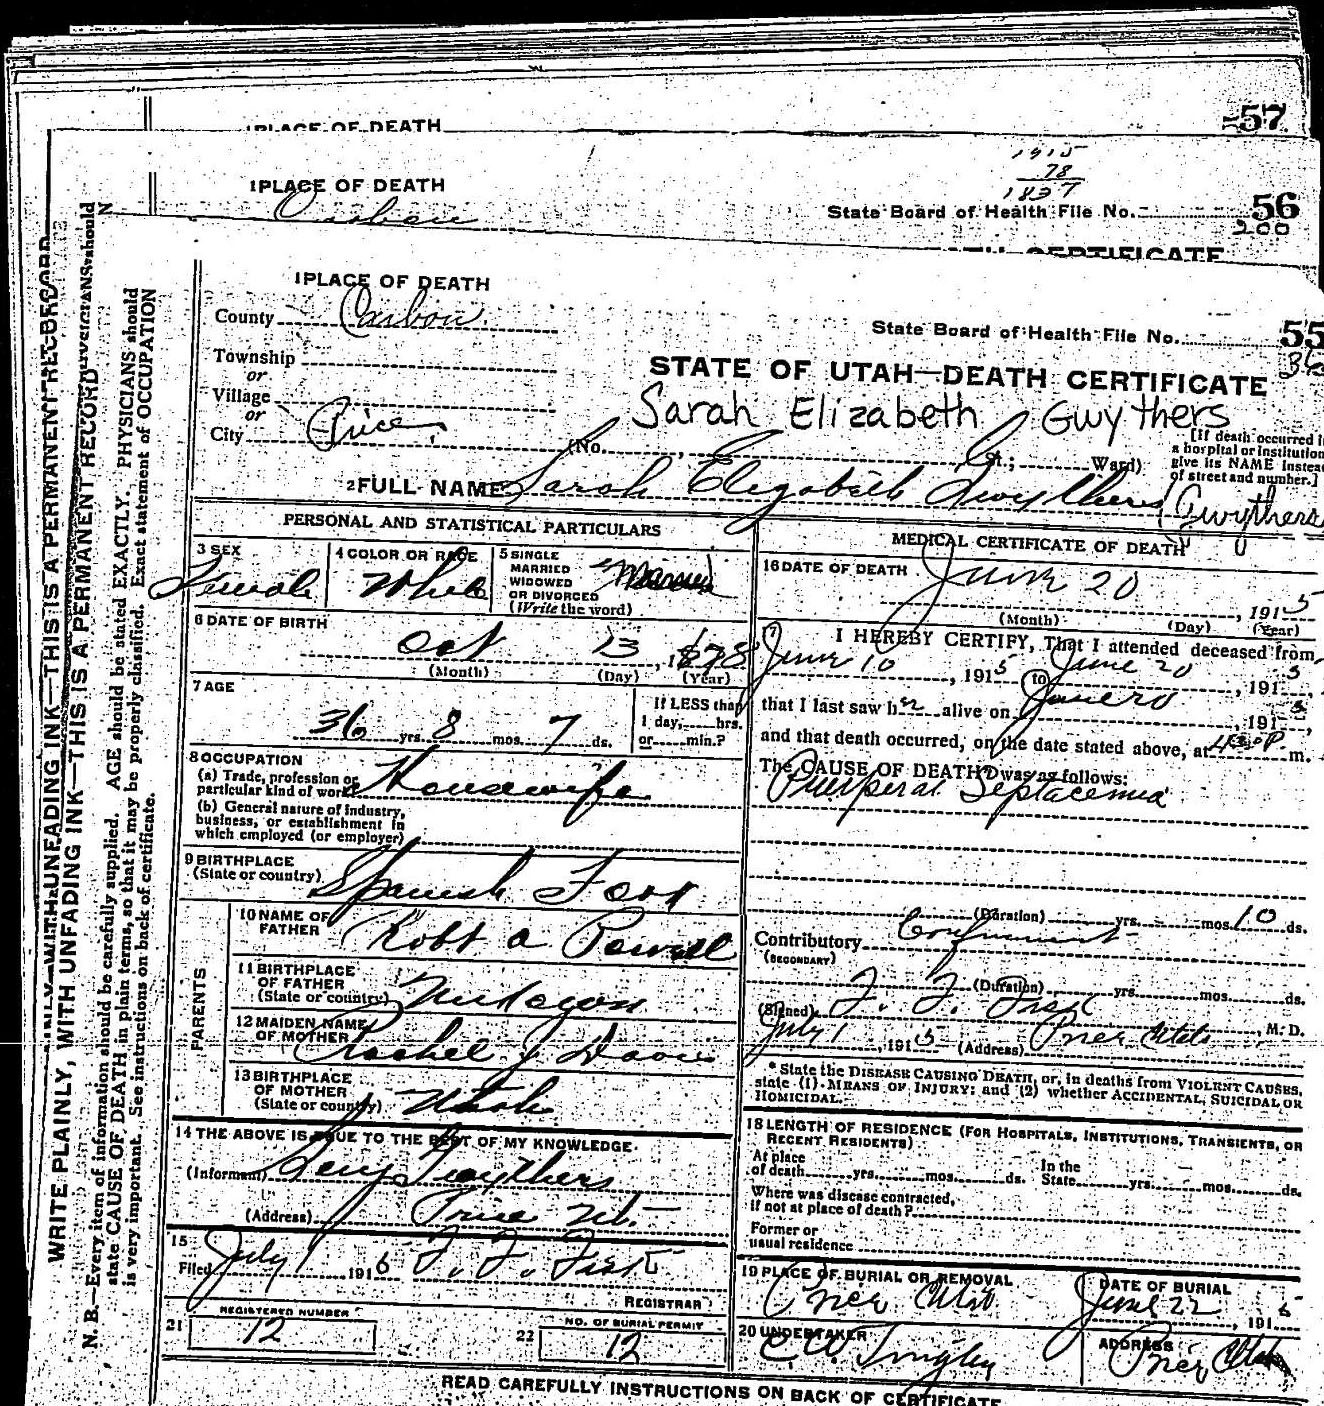 57
1 PLACE OF DEATH
1915
78
1837
1 PLACE OF DEATH
State Board of Health File No. 56
200
Carbon
DEATH CERTIFICATE
1 PLACE OF DEATH
County Carbon
State Board of Health File No. 55
Township
or
Village
or
City Price
STATE OF UTAH—DEATH CERTIFICATE
Sarah Elizabeth Gwythers
(No. St.; Ward)
[If death occurred in
a hospital or institution
give its NAME instead
of street and number.]
2 FULL NAME Sarah Elizabeth Gwythers (Gwythers
PERSONAL AND STATISTICAL PARTICULARS
3 SEX
Female
4 COLOR OR RACE
White
5 SINGLE
MARRIED
WIDOWED
OR DIVORCED
(Write the word)
Married
6 DATE OF BIRTH
Oct 13, 1878
(Month) (Day) (Year)
7 AGE
36 yrs. 8 mos. 7 ds.
If LESS than
1 day, hrs.
or min.?
8 OCCUPATION
(a) Trade, profession or
particular kind of work Housewife
(b) General nature of industry,
business, or establishment in
which employed (or employer)
9 BIRTHPLACE
(State or country) Spanish Fork
PARENTS
10 NAME OF
FATHER Robt a Powell
11 BIRTHPLACE
OF FATHER
(State or country)
12 MAIDEN NAME
OF MOTHER Rachel J Davis
13 BIRTHPLACE
OF MOTHER
(State or country) Utah
14 THE ABOVE IS TRUE TO THE BEST OF MY KNOWLEDGE
(Informant) Gwythers
(Address) Price Ut.
15
Filed July 1 1915 F. F. Fisk
REGISTRAR
21 REGISTERED NUMBER
12
22 NO. OF BURIAL PERMIT
12
MEDICAL CERTIFICATE OF DEATH
16 DATE OF DEATH June 20, 1915
(Month) (Day) (Year)
I HEREBY CERTIFY, That I attended deceased from
June 10, 1915 to June 20, 1915
that I last saw her alive on June 20, 1915,
and that death occurred, on the date stated above, at 430 P. m.
The CAUSE OF DEATH was as follows:
Puerperal Septacemia
(Duration) yrs. mos. 10 ds.
Contributory Confinement
(SECONDARY)
(Duration) yrs. mos. ds.
(Signed) F. F. Fisk, M. D.
July 1, 1915 (Address) Price Utah
* State the DISEASE CAUSING DEATH, or, in deaths from VIOLENT CAUSES,
state (1) MEANS OF INJURY; and (2) whether ACCIDENTAL, SUICIDAL OR
HOMICIDAL.
18 LENGTH OF RESIDENCE (FOR HOSPITALS, INSTITUTIONS, TRANSIENTS, OR
RECENT RESIDENTS)
At place
of death yrs. mos. ds.
In the
State yrs. mos. ds.
Where was disease contracted,
if not at place of death?
Former or
usual residence
19 PLACE OF BURIAL OR REMOVAL
Price Utah
DATE OF BURIAL
June 22, 1915
20 UNDERTAKER
ADDRESS
Price Utah
READ CAREFULLY INSTRUCTIONS ON BACK OF CERTIFICATE
WRITE PLAINLY, WITH UNFADING INK—THIS IS A PERMANENT RECORD
N. B.—Every item of information should be carefully supplied. AGE should be stated EXACTLY. PHYSICIANS should
state CAUSE OF DEATH in plain terms, so that it may be properly classified. Exact statement of OCCUPATION
is very important. See instructions on back of certificate.